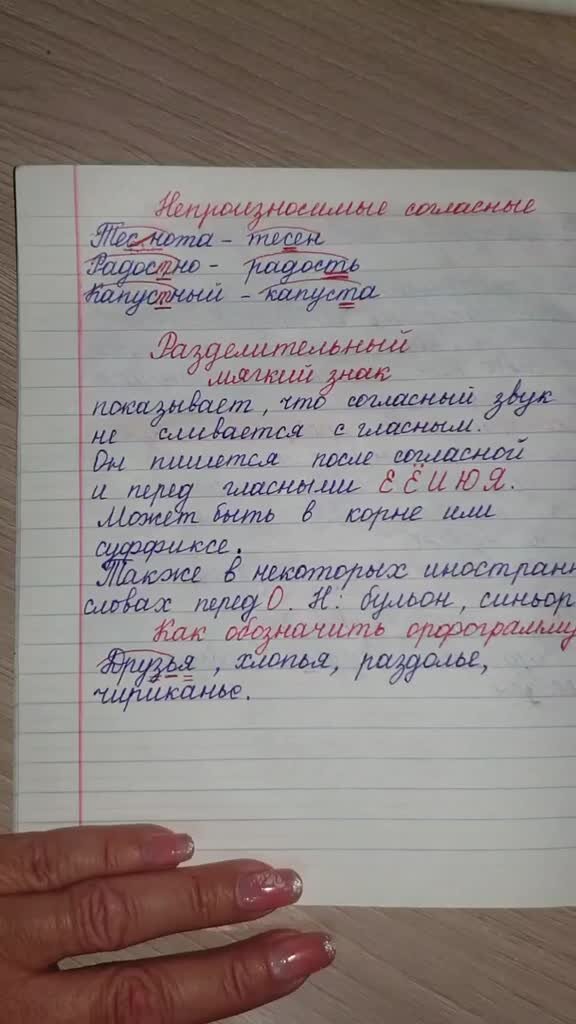 Непроизносимые согласные
Теснота - тесен
Радостно - радость
Капустный - капуста
Разделительный
мягкий знак
показывает, что согласный звук
не сливается с гласным.
Он пишется после согласной
и перед гласными Е Ё И Ю Я.
Может быть в корне или
суффиксе.
Также в некоторых иностранн
словах перед О. Н: бульон, синьор
Как обозначить орфограмму
Друзья, хлопья, раздолье,
чириканье.